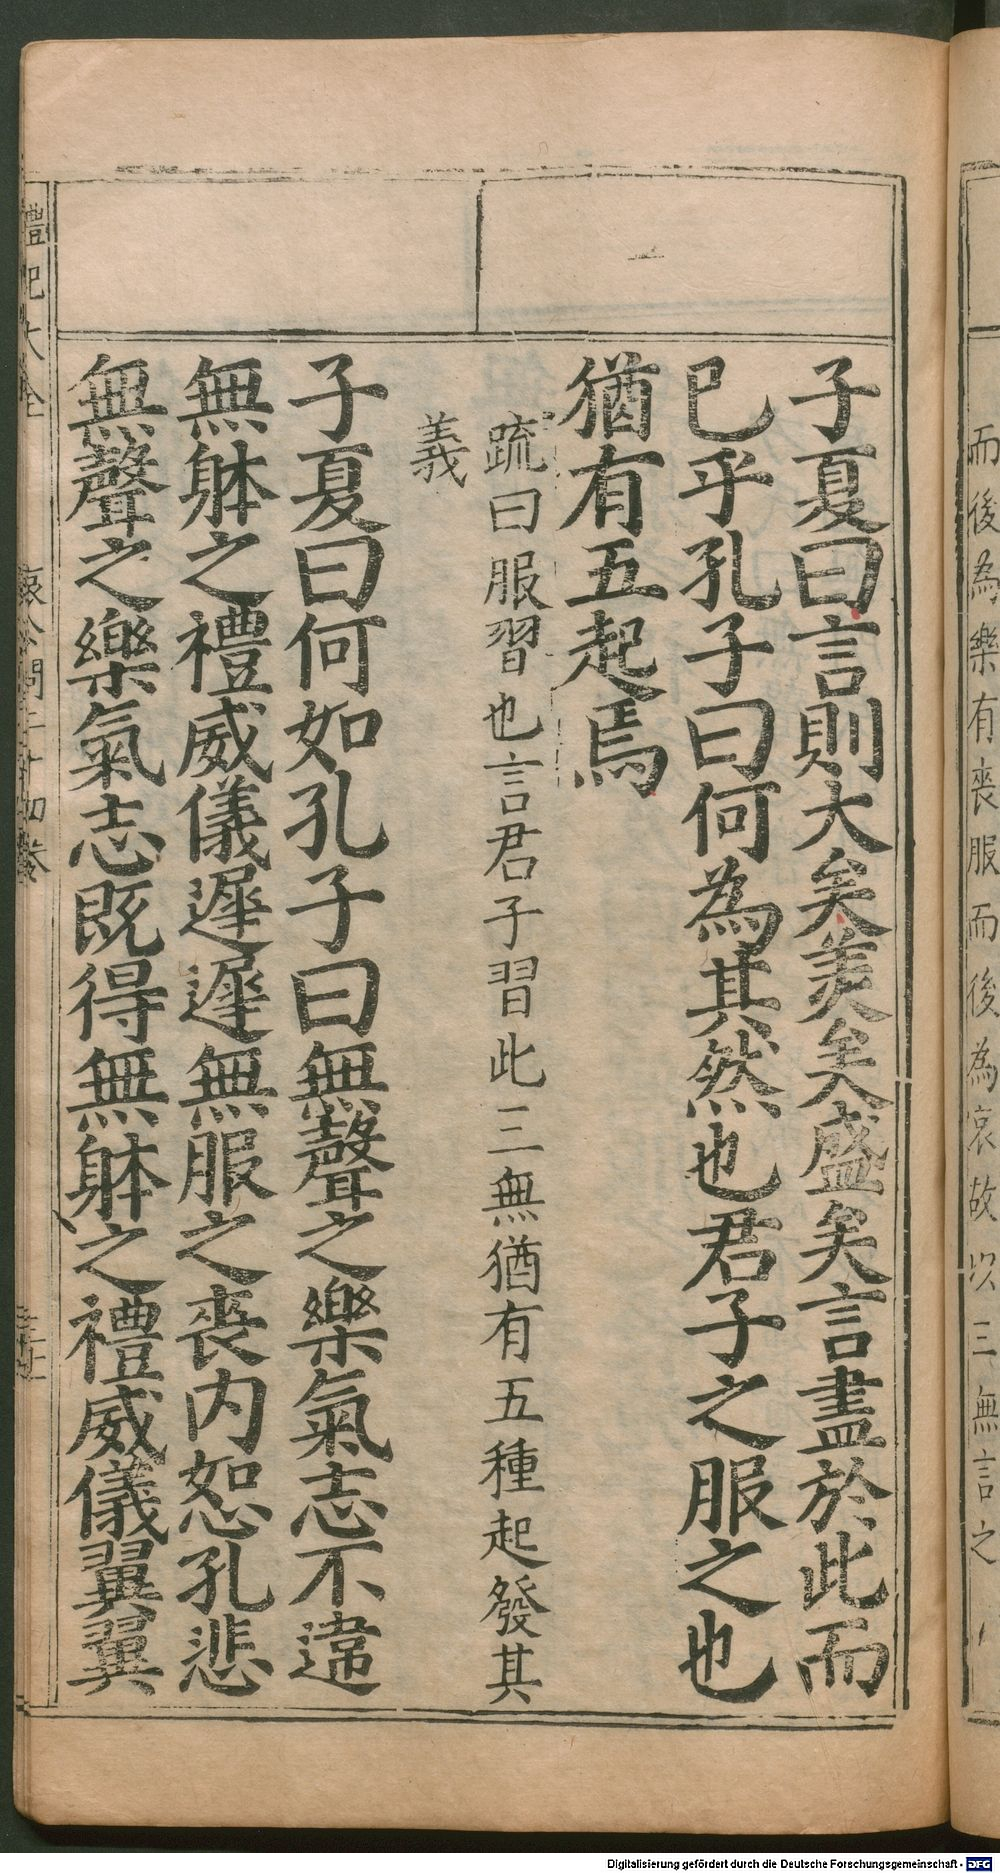 而後為樂有喪服而後為哀故以三無言之
子夏曰言則大矣羙矣盛矣言盡於此而
已乎孔子曰何為其然也君子之服之也
猶有五起焉
疏曰服習也言君子習此三無猶有五種起發其
義
子夏曰何如孔子曰無聲之樂氣志不違
無躰之禮威儀遲遲無服之喪内恕孔悲
無聲之樂氣志既得無躰之禮威儀翼翼
禮記大全
Digitalisierung gefördert durch die Deutsche Forschungsgemeinschaft - DFG